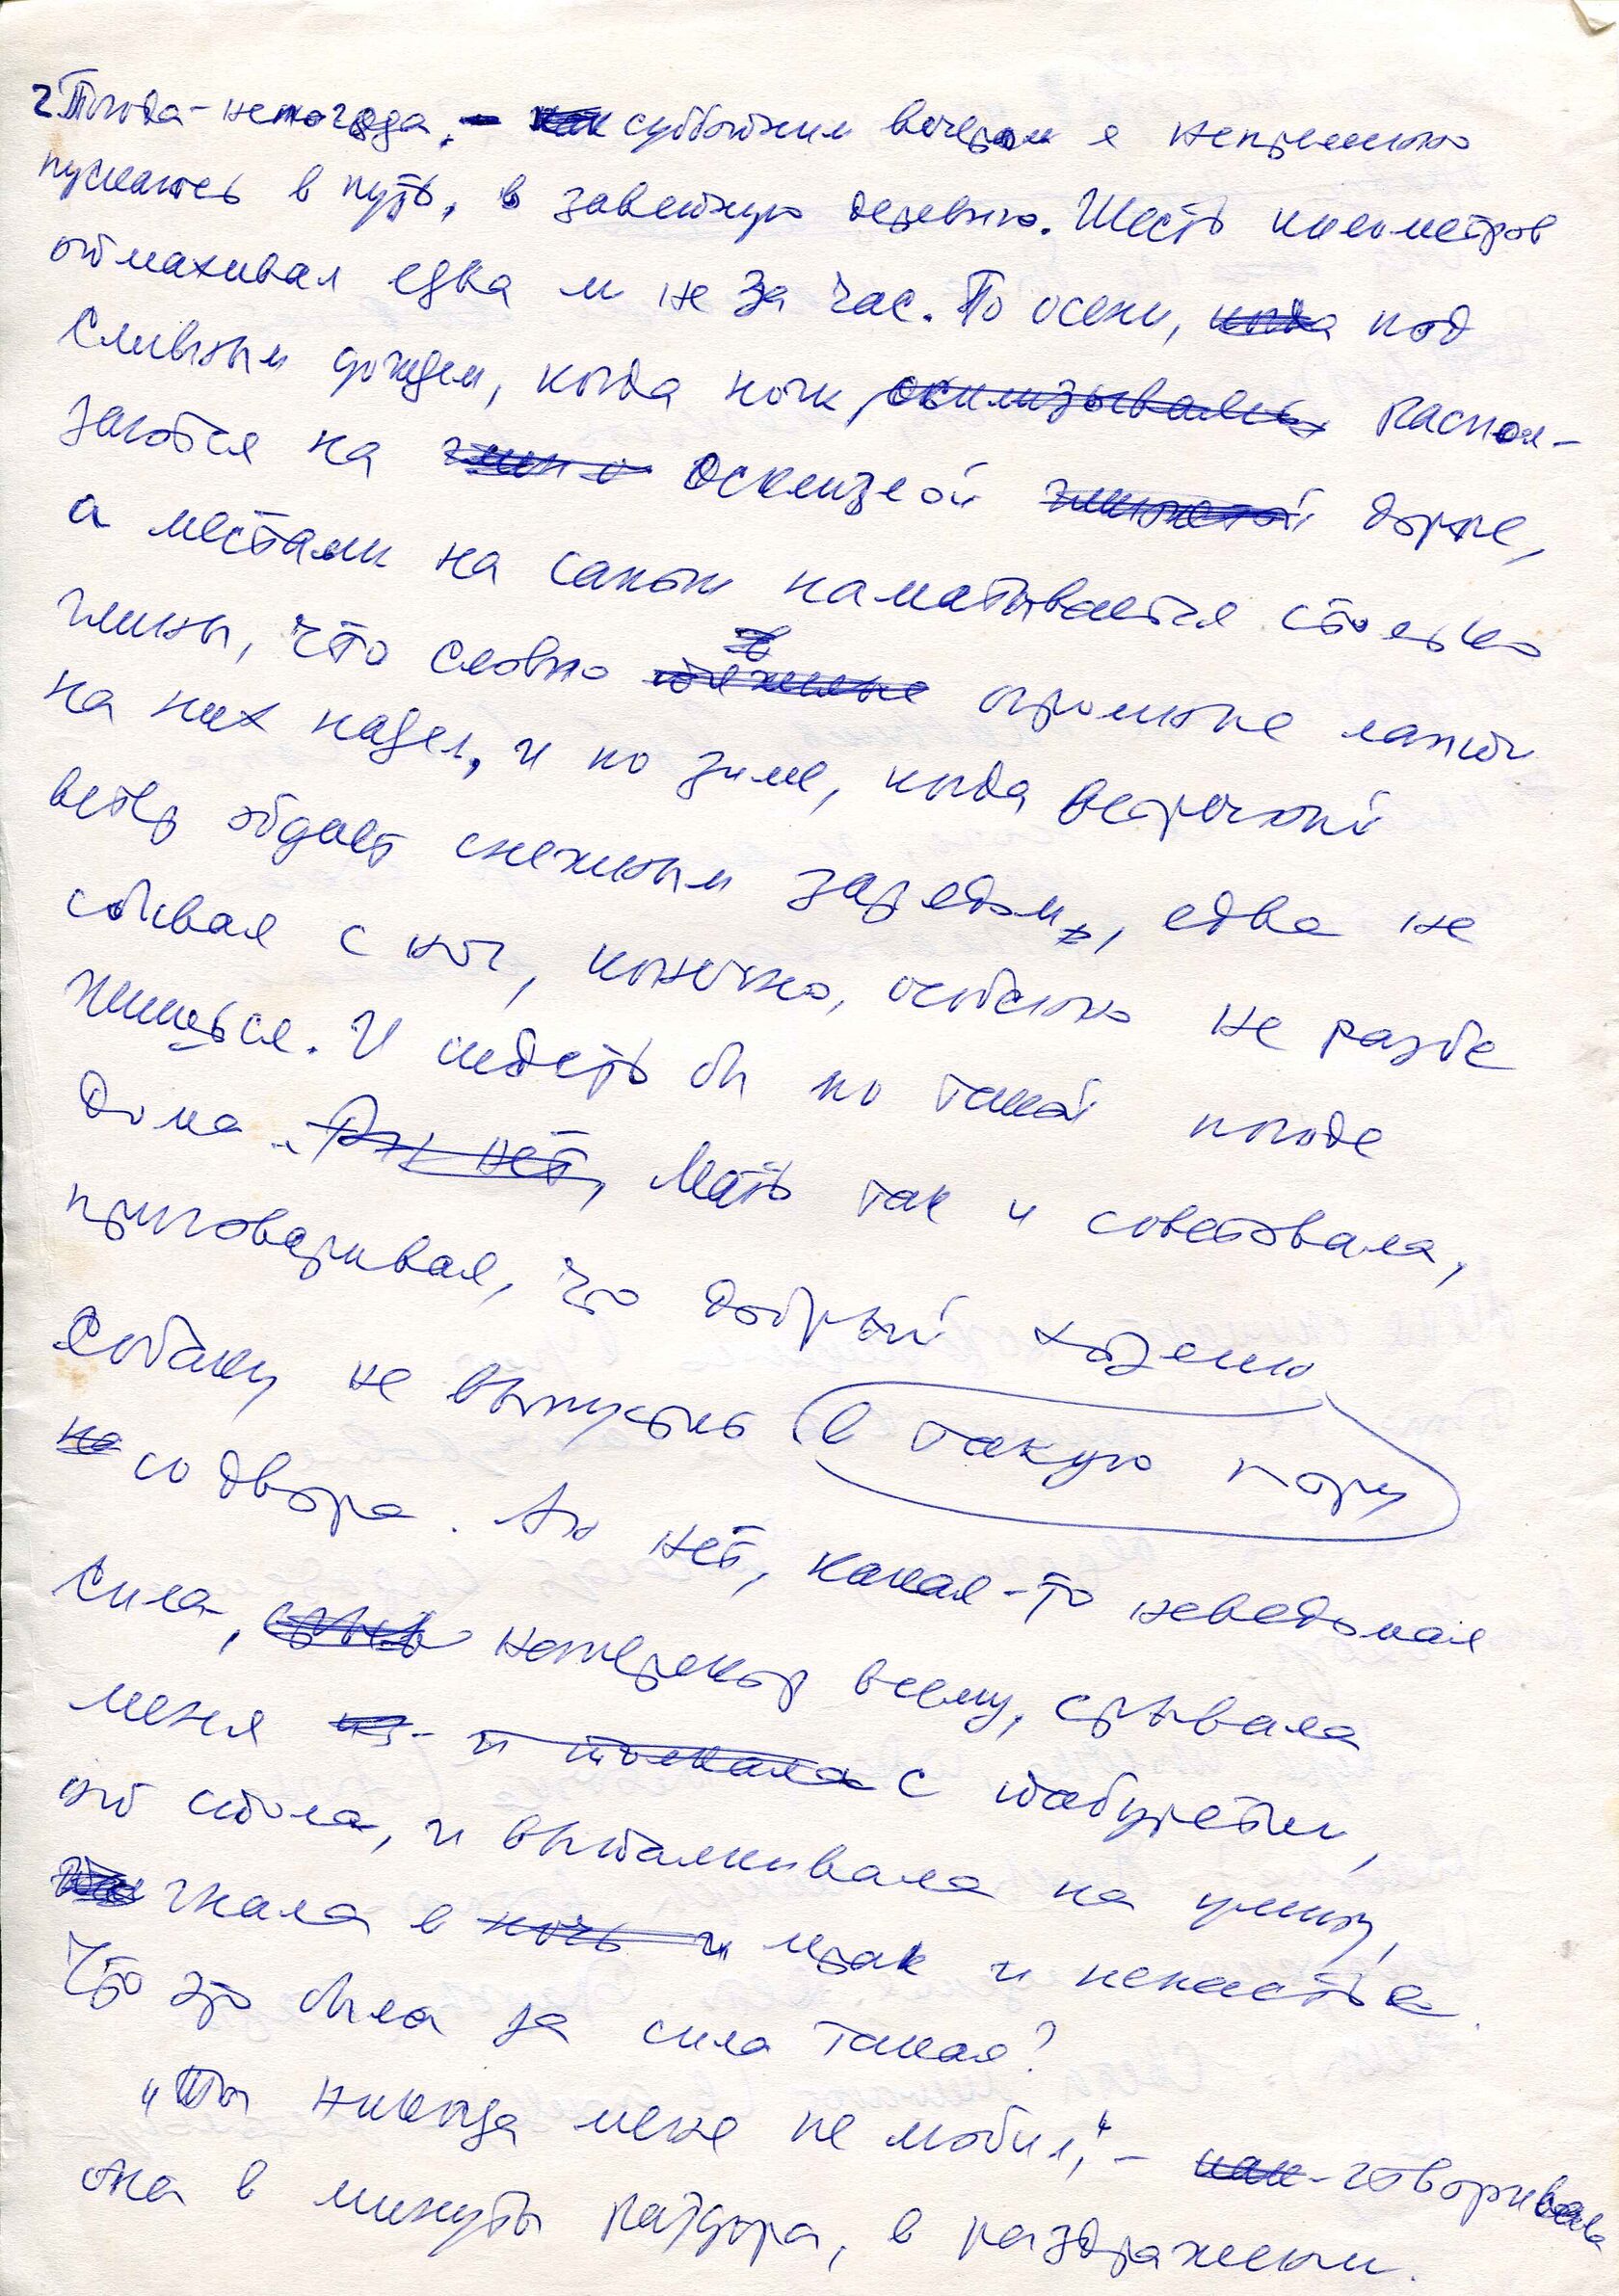 2. Погода-непогода, субботним вечером я непременно
пускаюсь в путь, в заветную деревню. Шесть километров
отмахивал едва ли не за час. По осени, под
сливным дождем, когда ноги располо-
заются на осклизлой дороге,
а местами на сапоги наматывается столько
глины, что словно огромные лапти
на них надел, и по зиме, когда встречный
ветер обдает снежным зарядом, едва не
сбивая с ног, конечно, особенно не разбе
жишься. И сидеть бы по такой погоде
дома. Мать так и советовала,
приговаривая, что добрый хозяин
собаку не выпустит в такую пору
со двора. Ан нет, какая-то неведомая
сила, наперекор всему, срывала
меня с табуретки,
от стола, и выталкивала на улицу,
гнала в мрак и ненастье.
Что это была за сила такая?
„Ты никогда меня не любил," - говаривала
она в минуты раздора, в раздражении.